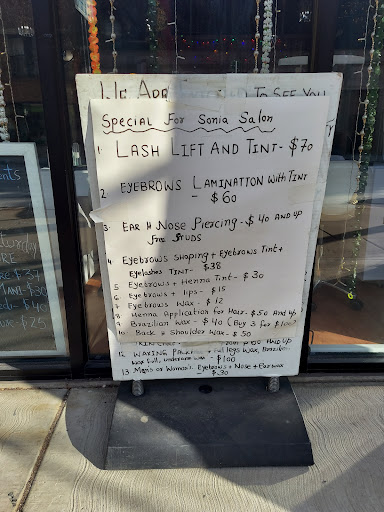 We Are To See You
Special For Sonia Salon
1 LASH LIFT AND TINT - $70
2 EYEBROWS LAMINATION With TINT
- $60
3. Ear & Nose Piercing - $40 AND UP
Free STUDS
4 Eyebrows Shaping + Eyebrows Tint +
Eyelashes TINT - $38
5 Eyebrows + Henna Tint - $30
6 Eyebrows + lips - $15
7 Eyebrows Wax - $12
8 Henna Application for Hair - $50 AND UP
9 Brazilian Wax - $40 (Buy 3 for $100)
10 Back + Shoulder Wax - $50
AND UP
12 WAXING legs Wax, Brazilian
Wax full, underarm wax
- $100
13 Men's or Women's Eyebrows + Nose + Ear wax
- $30